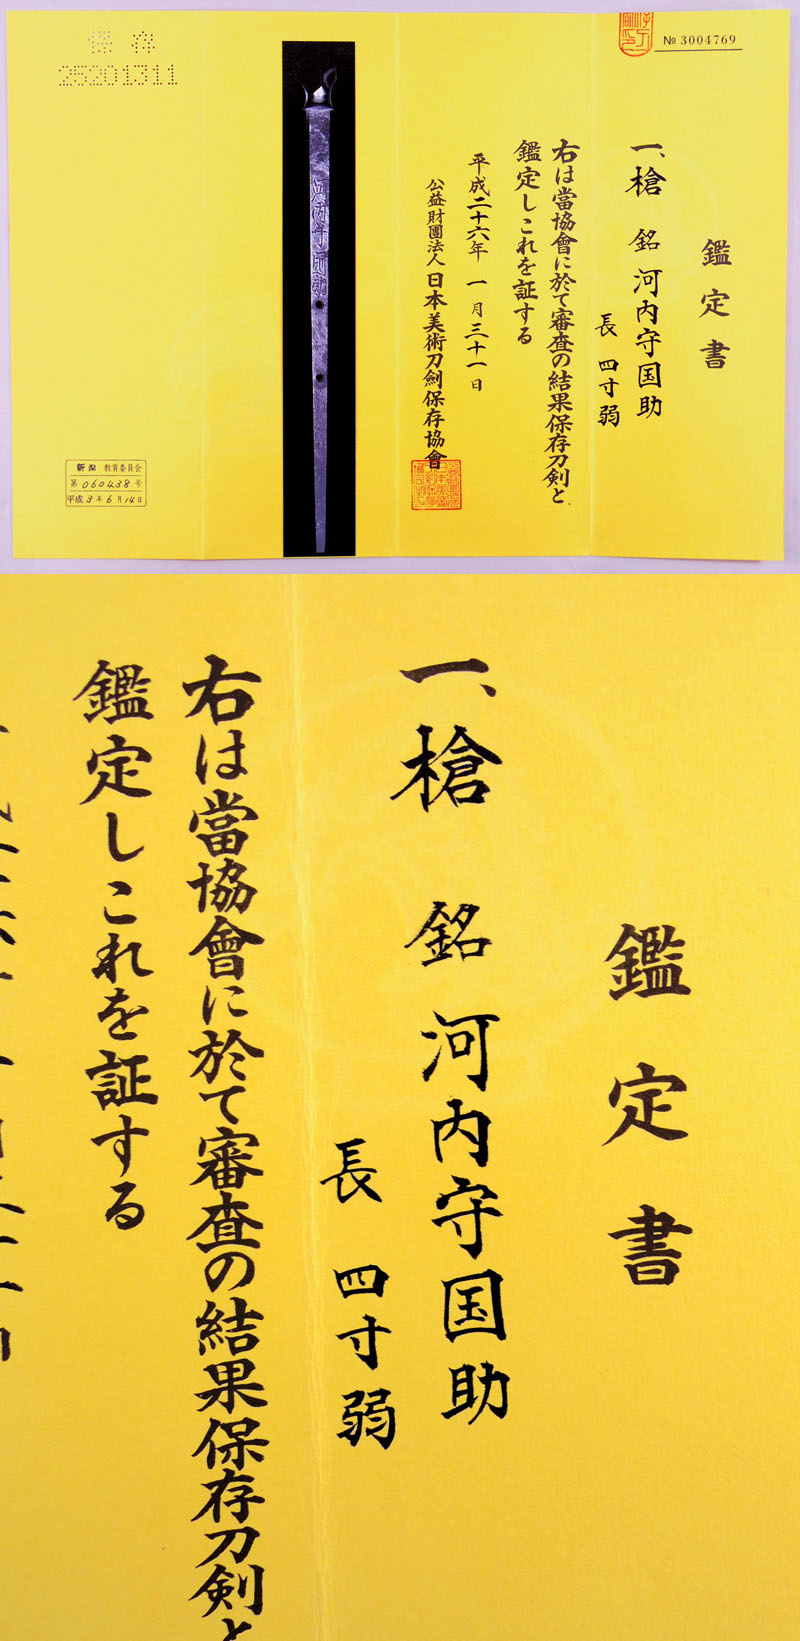 № 3004769
鑑定書
一、槍 銘 河内守国助
長 四寸弱
右は當協會に於て審査の結果保存刀剣と
鑑定しこれを証する
平成二十六年 一月三十一日
公益財團法人 日本美術刀劍保存協會
保存
25201311
新潟 教育委員会
第 060438 号
平成 3 年 6 月 14 日
鑑定書
一、槍 銘 河内守国助
長 四寸弱
右は當協會に於て審査の結果保存刀剣と
鑑定しこれを証する